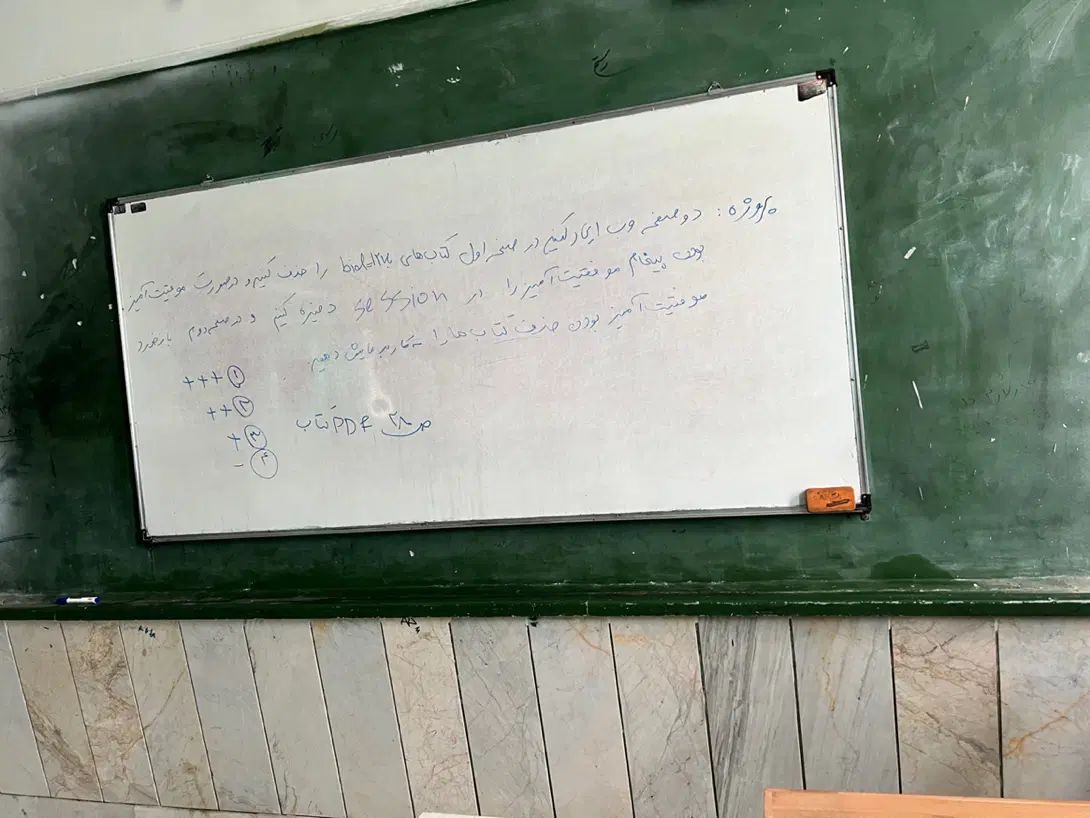 پروژه: دو صفحه وب ایجاد کنیم در صفحه اول کتاب‌های با bid=۲ را حذف کنیم و در صورت موفقیت آمیز
بودن پیغام موفقیت آمیز را در session ذخیره کنیم و در صفحه دوم
موفقیت آمیز بودن حذف کتاب ها را به کاربر نمایش دهیم.
+++ ①
++ ②
+ ③
- ④
ص ۲۸ PDF کتاب